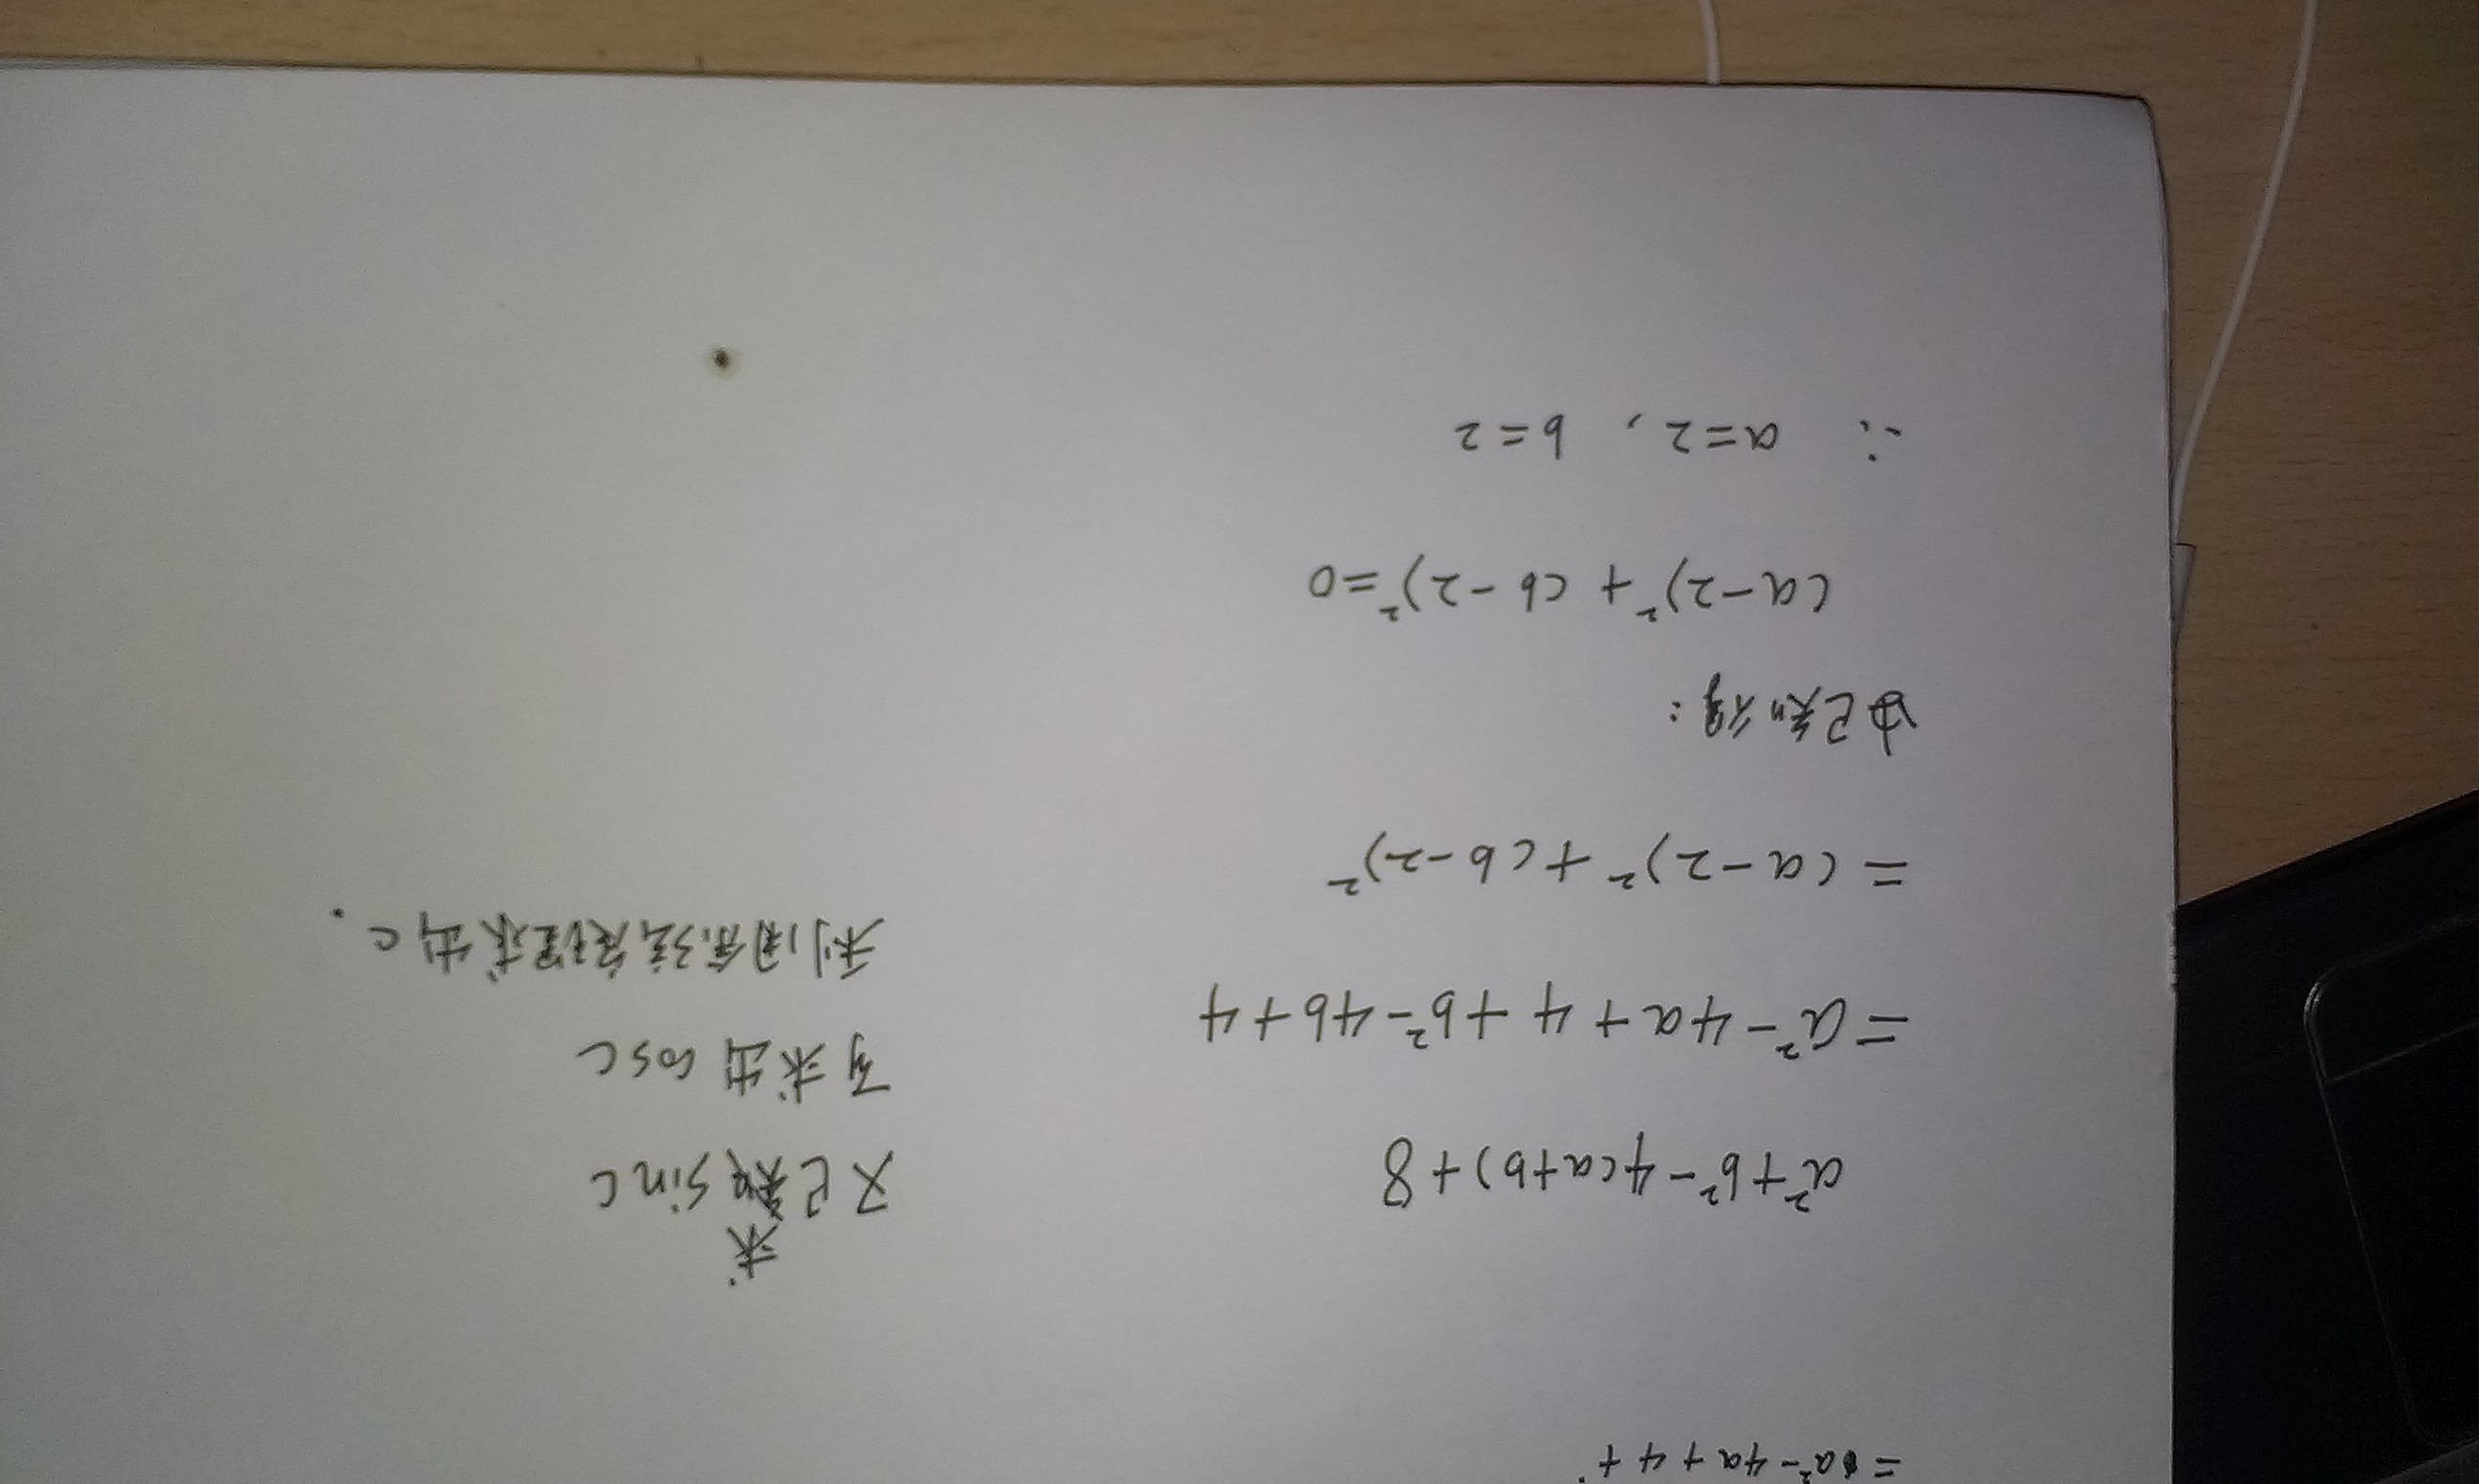 = a²-4a+4+
a²+b²-4(a+b)+8
= a²-4a+4+b²-4b+4
= (a-2)²+(b-2)²
由已知得:
(a-2)²+(b-2)²=0
∴ a=2, b=2
求
又已知 sin C
可求出 cos C
利用余弦定理求出c.